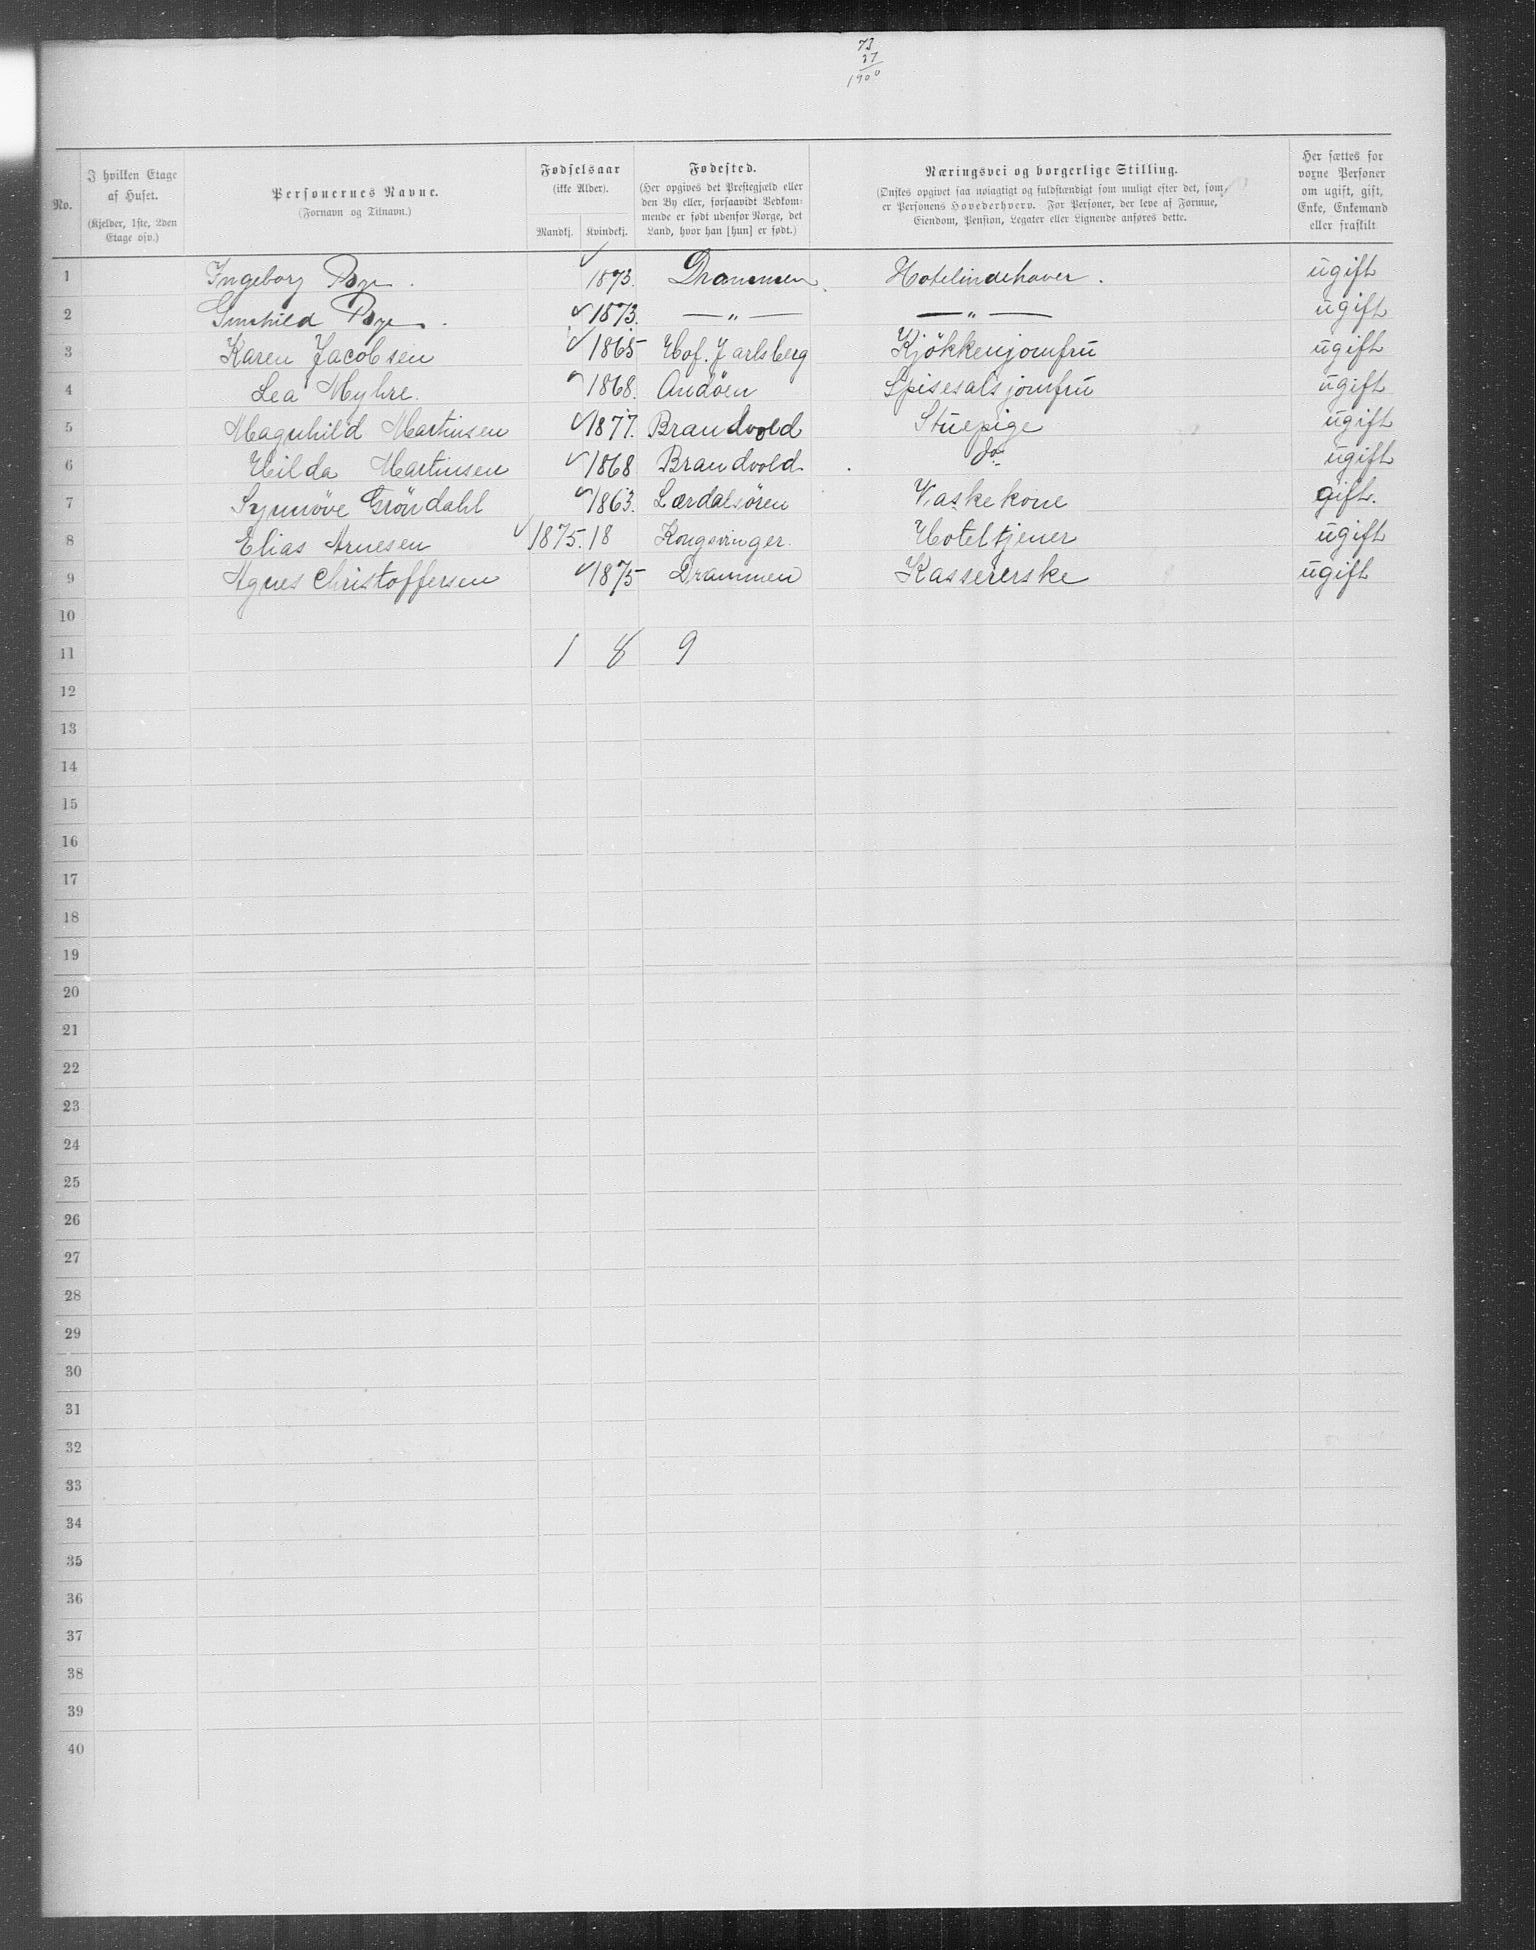 73
27
1900
No.
I hvilken Etage af Huset.
(Kjelder, 1ste, 2den Etage osv.)
Personernes Navne.
(Fornavn og Tilnavn.)
Fødselsaar
(ikke Alder).
Mandkj.
Kvindekj.
Fødested.
(Her opgives det Prestegjæld eller den By eller, forsaavidt Vedkommende er født udenfor Norge, det Land, hvor han [hun] er født.)
Næringsvei og borgerlige Stilling.
(Ønskes opgivet saa nøiagtigt og fuldstændigt som muligt efter det, som er Personens Hovederhverv. For Personer, der leve af Formue, Eiendom, Pension, Legater eller Lignende anføres dette.
Her sættes for voxne Personer om ugift, gift, Enke, Enkemand eller fraskilt
1 Ingeborg Bye. 1873. Drammen. Hotelindehaver. ugift
2 Gunhild Bye. 1873. —„— —„— ugift
3 Karen Jacobsen 1865 Hof. Jarlsberg Kjökkenjomfru ugift
4 Lea Myhre. 1868. Andöen Spisesalsjomfru ugift
5 Magnhild Martinsen 1877. Brandvold Stuepige ugift
6 Hilda Martinsen 1868 Brandvold. do ugift
7 Synnöve Gröndahl 1863. Lærdalsören Vaskekone gift.
8 Elias Arnesen 1875. 18 Kongsvinger. Hoteltjener ugift
9 Agnes Christoffersen 1875 Drammen Kassererske ugift
10
11 1 8 9
12
13
14
15
16
17
18
19
20
21
22
23
24
25
26
27
28
29
30
31
32
33
34
35
36
37
38
39
40